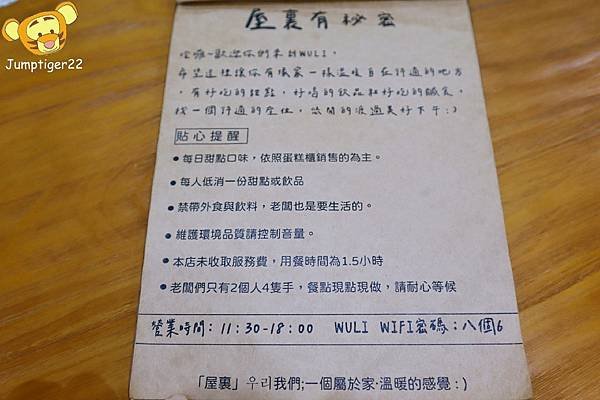 Jumptiger22
屋裏有秘密
哈囉~歡迎你們來到WULI,
希望這裡讓你有像家一樣溫暖自在舒適的地方,
有好吃的甜點,好喝的飲品和好吃的鹹食,
找一個舒適的座位,悠閒的渡過美好下午:)
貼心提醒
●每日甜點口味，依照蛋糕櫃銷售的為主。
●每人低消一份甜點或飲品
●禁帶外食與飲料，老闆也是要生活的。
●維護環境品質請控制音量。
●本店未收取服務費，用餐時間為1.5小時
●老闆們只有2個人4隻手，餐點現點現做，請耐心等候
營業時間：11:30-18:00 WULI WIFI密碼：八個6
「屋裏」우리我們;一個屬於家·溫暖的感覺:)